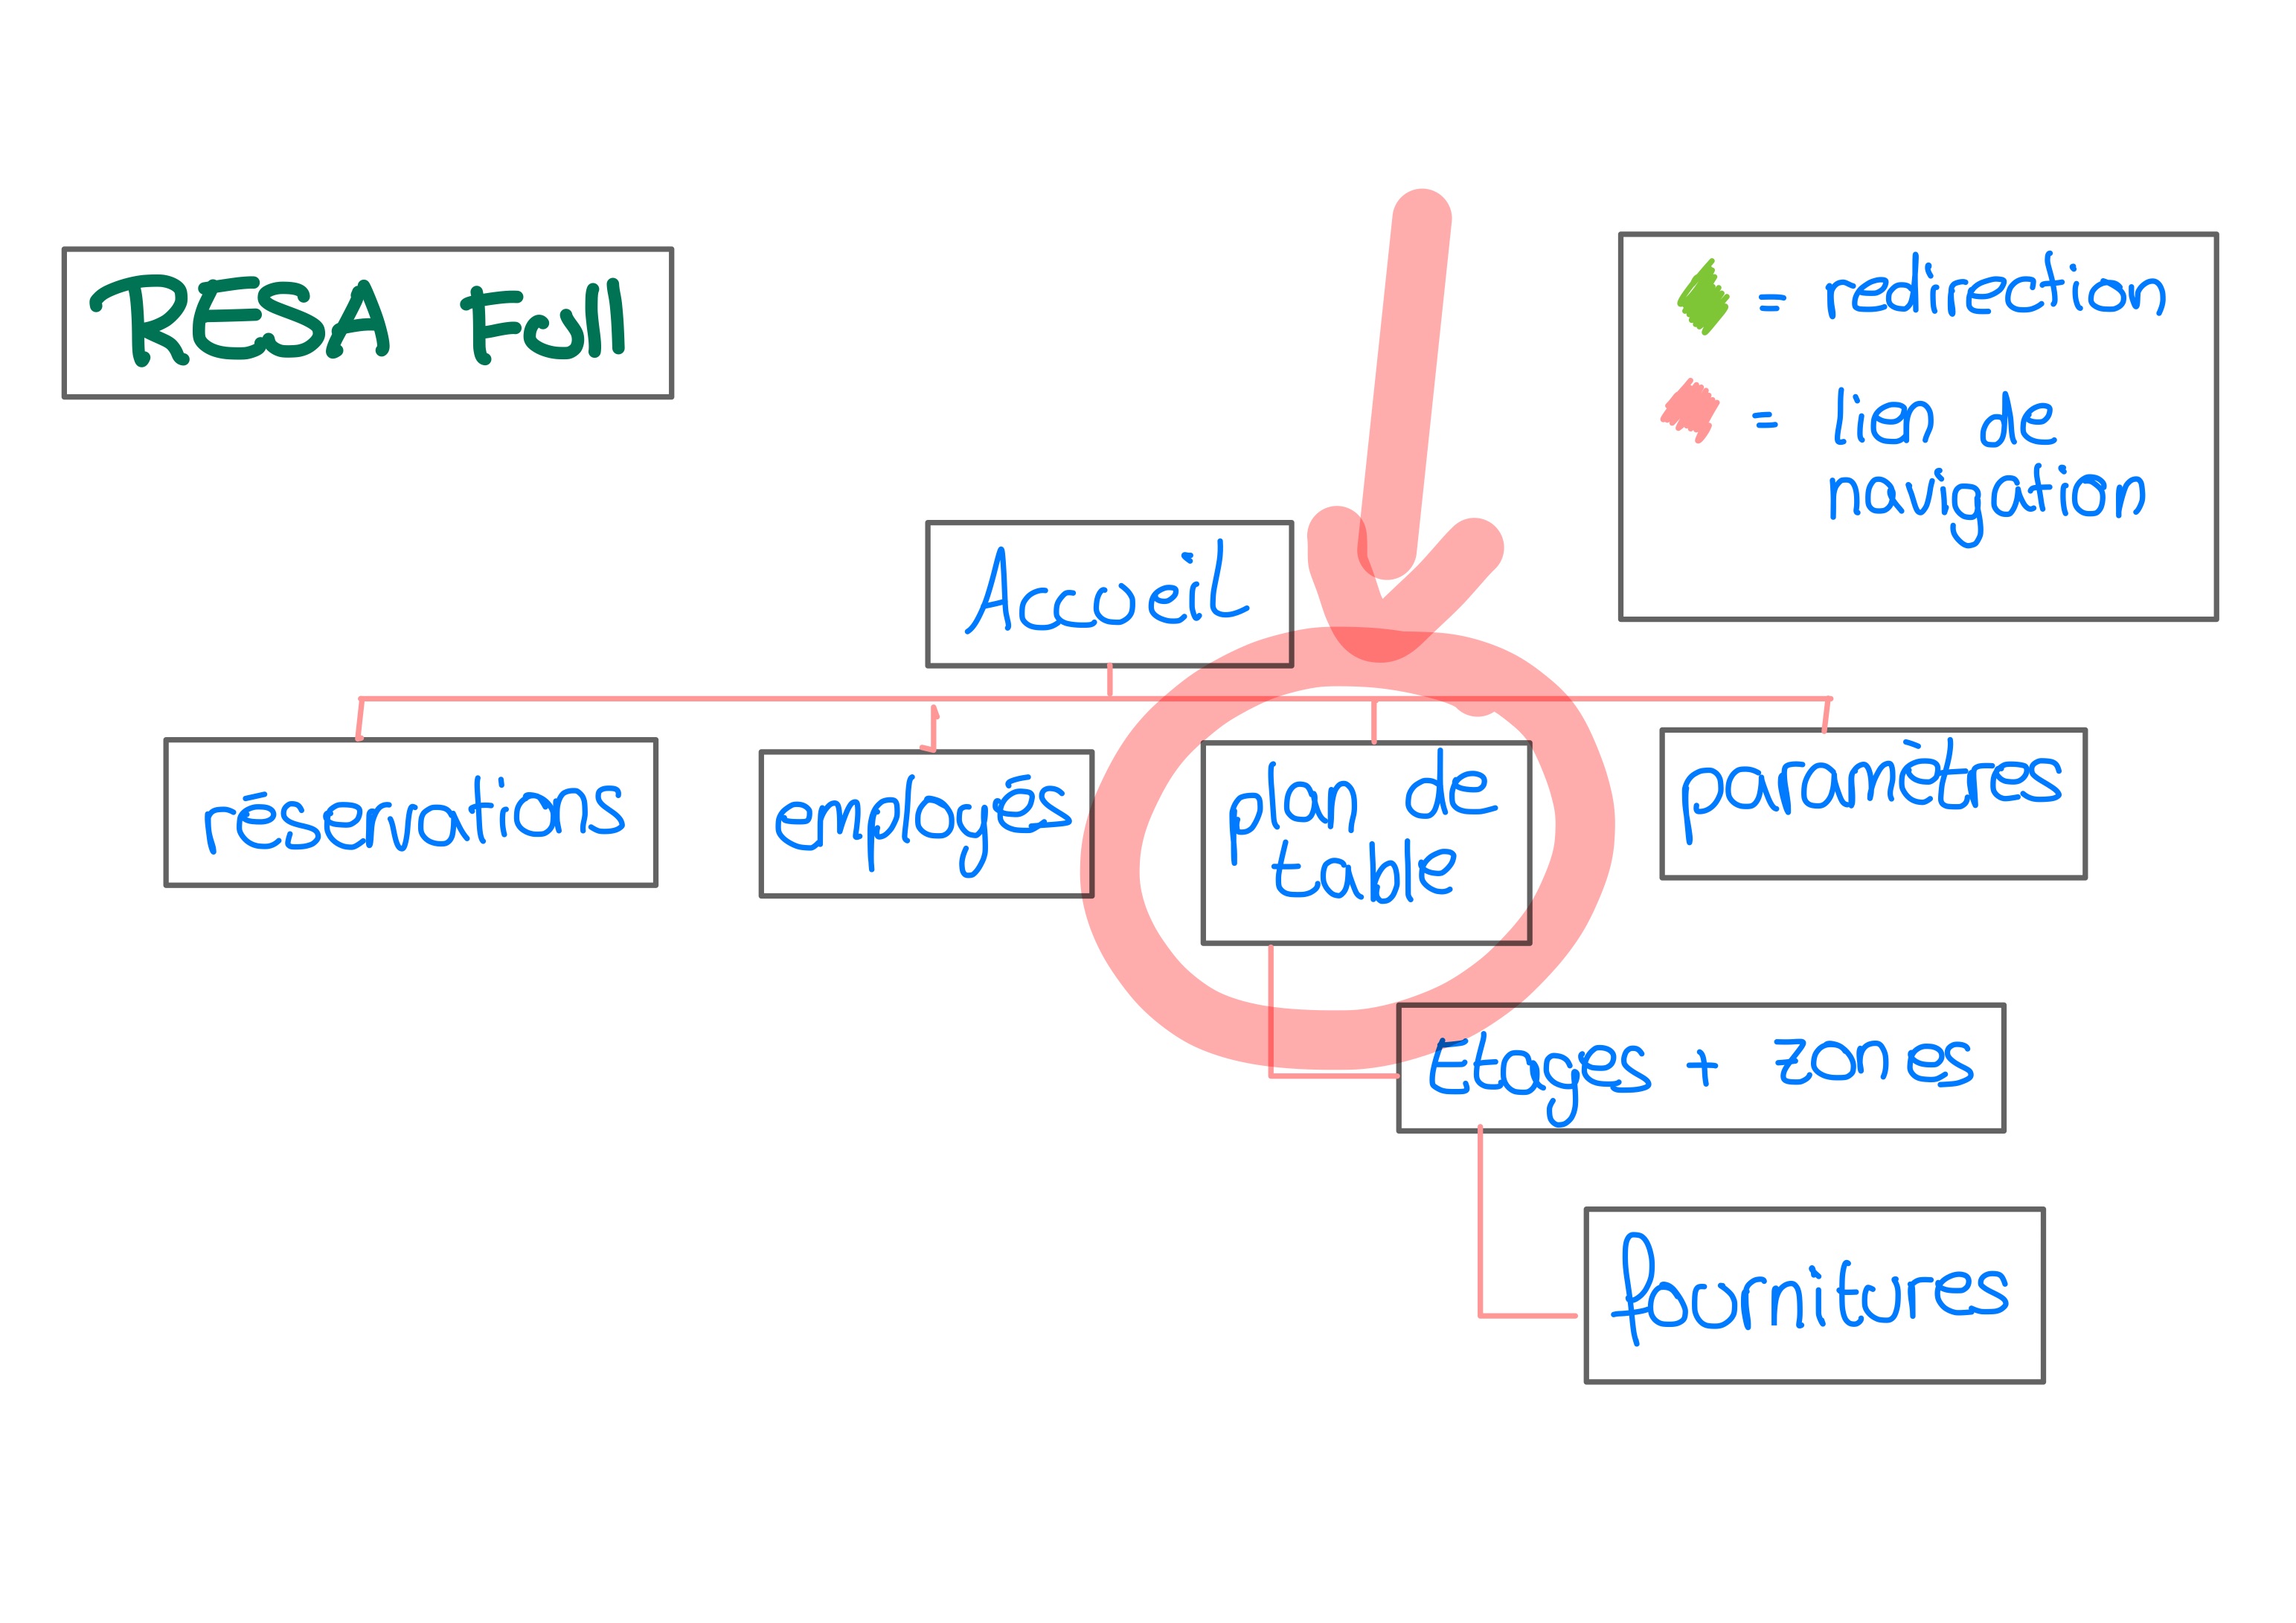 RESA Fcll
= redirection
= lien de
navigation
Accueil
réservations
employés
plan de
table
paramètres
Etages + zones
fournitures